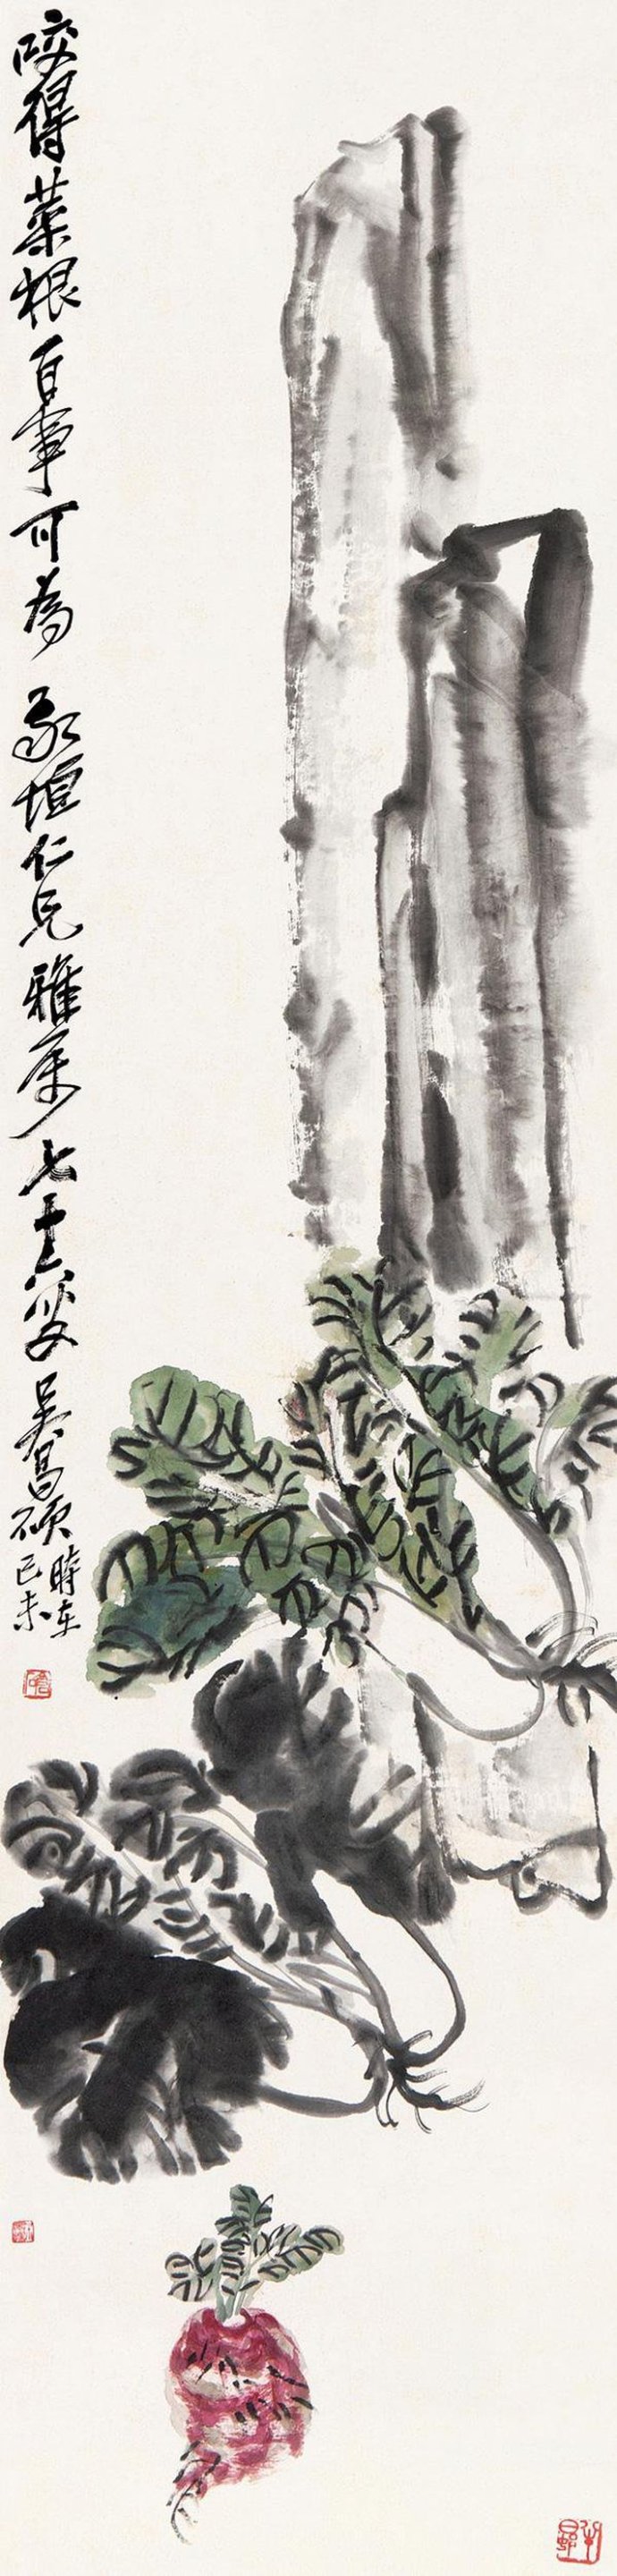 咬得菜根百事可為 敬垣仁兄雅屬 七十六叟 吳昌碩
時在
己未